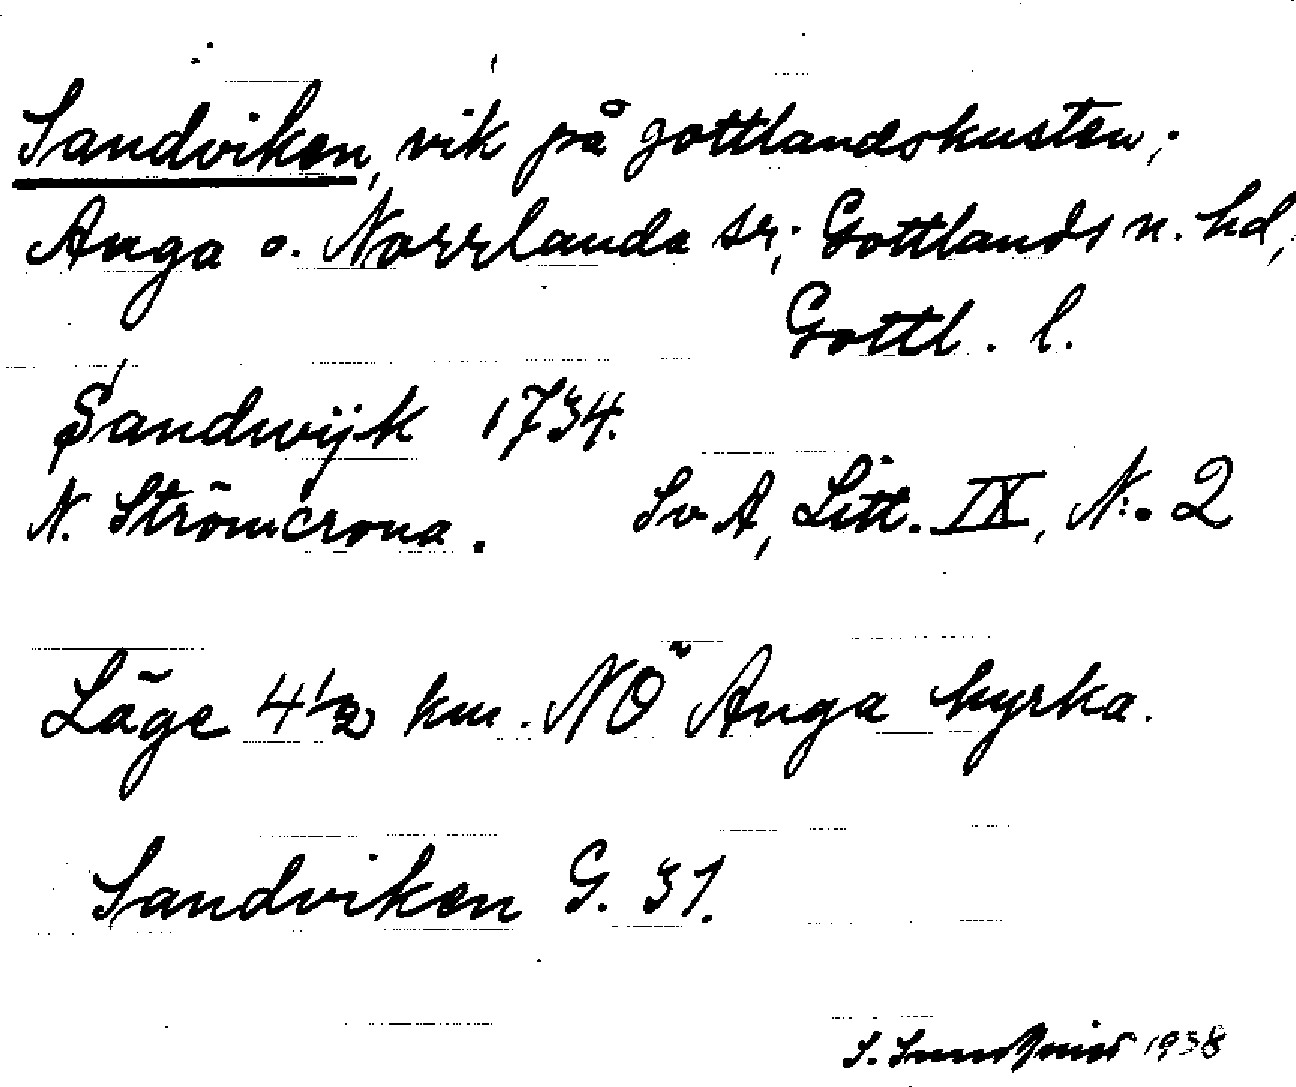 Sandviken, vik på gottlandskusten;
Anga o. Norrlanda sr; Gottlands n. hd,
Gottl. l.
Sandwijk 1734.
N. Strömcrona. Sv A, Litt. IX, N:o 2
Läge 4 1/2 km. NÖ Anga kyrka.
Sandviken G. 31.
S. 1938